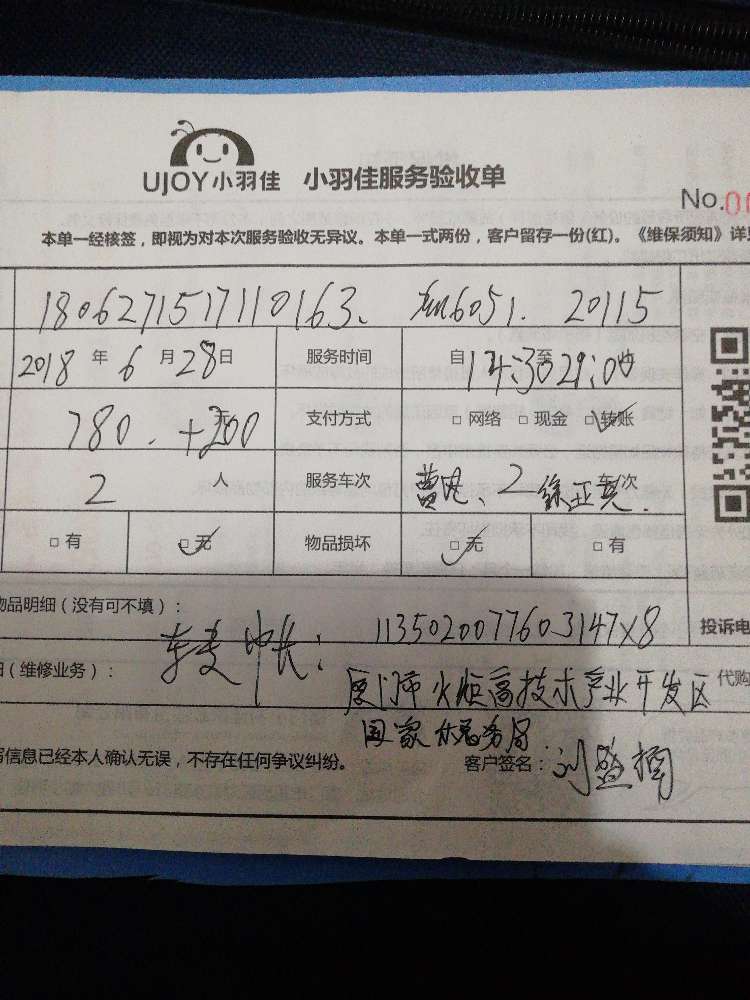 UJOY小羽佳 小羽佳服务验收单
No.0
本单一经核签，即视为对本次服务验收无异议。本单一式两份，客户留存一份(红)。《维保须知》详见
1806271517110163、 6051. 20115
2018 年 6 月 28 日 服务时间 自 17:30 至 21:00
780.+200 元 支付方式 □ 网络 □ 现金 □ 转账
2 人 服务车次 2 徐正 车次
□ 有 □ 无 物品损坏 □ 无 □ 有
物品明细（没有可不填）：
1135020077603147X8
投诉电
（维修业务）：
厦门市火炬高技术产业开发区
代购
国家税务局
写信息已经本人确认无误，不存在任何争议纠纷。 客户签名：刘盛